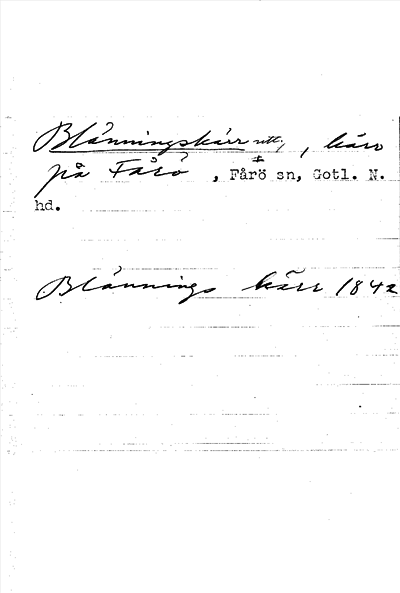 Blänningskärr utt., , kärr
på Fårö , Fårö sn, Gotl. N.
hd.
Blännings kärr 1842